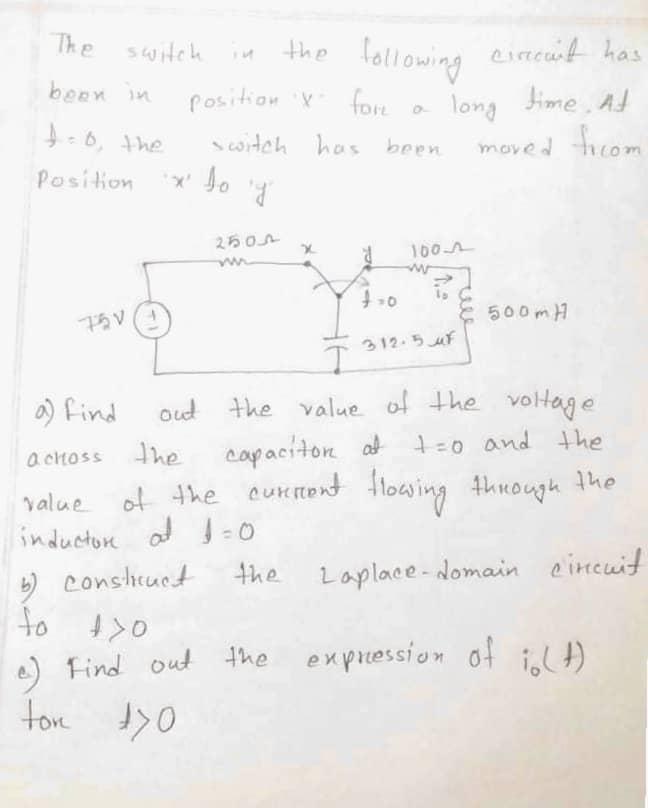 The switch in the following circuit has
been in position 'x' for a long time. At
t=0, the switch has been moved from
Position 'x' to 'y'
250Ω x y 100Ω
t=0 i₀
75V + 500mH
312.5 μF
a) find out the value of the voltage
across the capacitor at t=0 and the
value of the current flowing through the
inductor at t=0
b) construct the Laplace-domain circuit
to t>0
c) Find out the expression of i₀(t)
for t>0